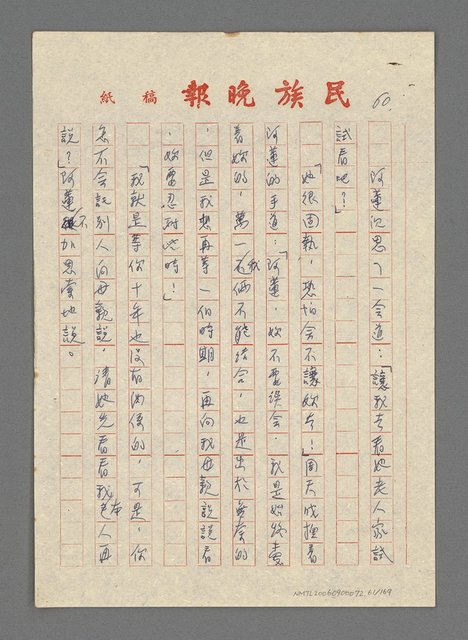 民族晚報 稿紙
60
阿蓮沉思了一會道:「讓我去看她老人家試
試看吧?」
「她很固執,恐怕會不讓妳去!」周天成撫着
阿蓮的手道:「阿蓮,妳不要誤會,我是始終愛
着妳的,萬一我倆不能結合,也是出於無奈的
,但是我想再等一個時期,再向我母親說說看
,妳要忍耐些時!」
「我就是等你十年也沒有問題的,可是,你
怎不會託別人向母親說,請她先看看我本人再
說?」阿蓮不加思索地說。
NMTL20060900072_61/169